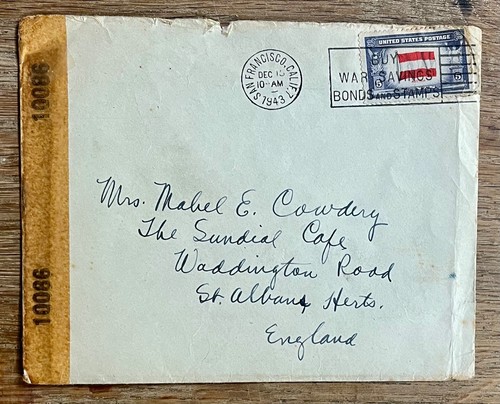 10066
10066
UNITED STATES POSTAGE
5 5
SAN FRANCISCO, CALIF. 7
DEC 15
10-AM
1943
BUY
WAR SAVINGS
BONDS AND STAMPS
Mrs. Mabel E. Cowdery
The Sundial Cafe
Waddington Road
St. Albans, Herts.
England